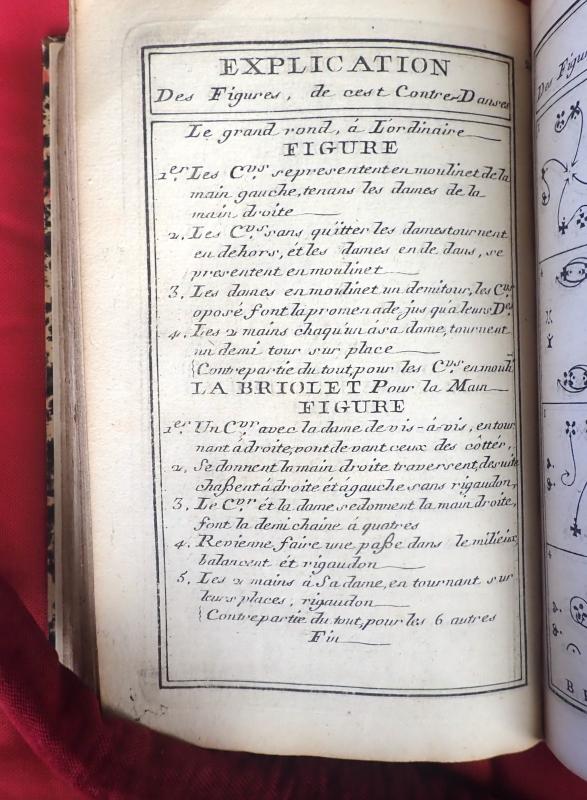 EXPLICATION
Des Figures, de cest Contre-Danses
Le grand rond, á Lordinaire
FIGURE
1er. Les Cvrs se presentent en moulinet de la
main gauche, tenans les dames de la
main droite
2. Les Cvrs sans quitter les dames tournent
en dehors, ét les dames en de dans, se
presentent en moulinet
3. Les dames en moulinet un demi tour, les Cvrs
oposé font la promenade jus qu'a leurs Des
4. Les 2 mains chaqu'un á sa dame, tournent
un demi tour sur place
{Contrepartie du tout, pour les Cvrs en moult
LA BRIOLET Pour la Main
FIGURE
1er. Un Cvr avec la dame de vis-á-vis, en tour
nant á droite, vont de vant ceux des côttér,
2. Se donnent la main droite traversent, de suite
chaßent á droite ét á gauche sans rigaudon,
3. Le Cvr ét la dame se donnent la main droite,
font la demi chaine á quatres
4. Revienne faire une paße dans le milieux
balancent ét rigaudon
5. Les 2 mains á Sa dame, en tournant sur
leurs places, rigaudon
{Contrepartie du tout, pour les 6 autres
Fin
Des Figu